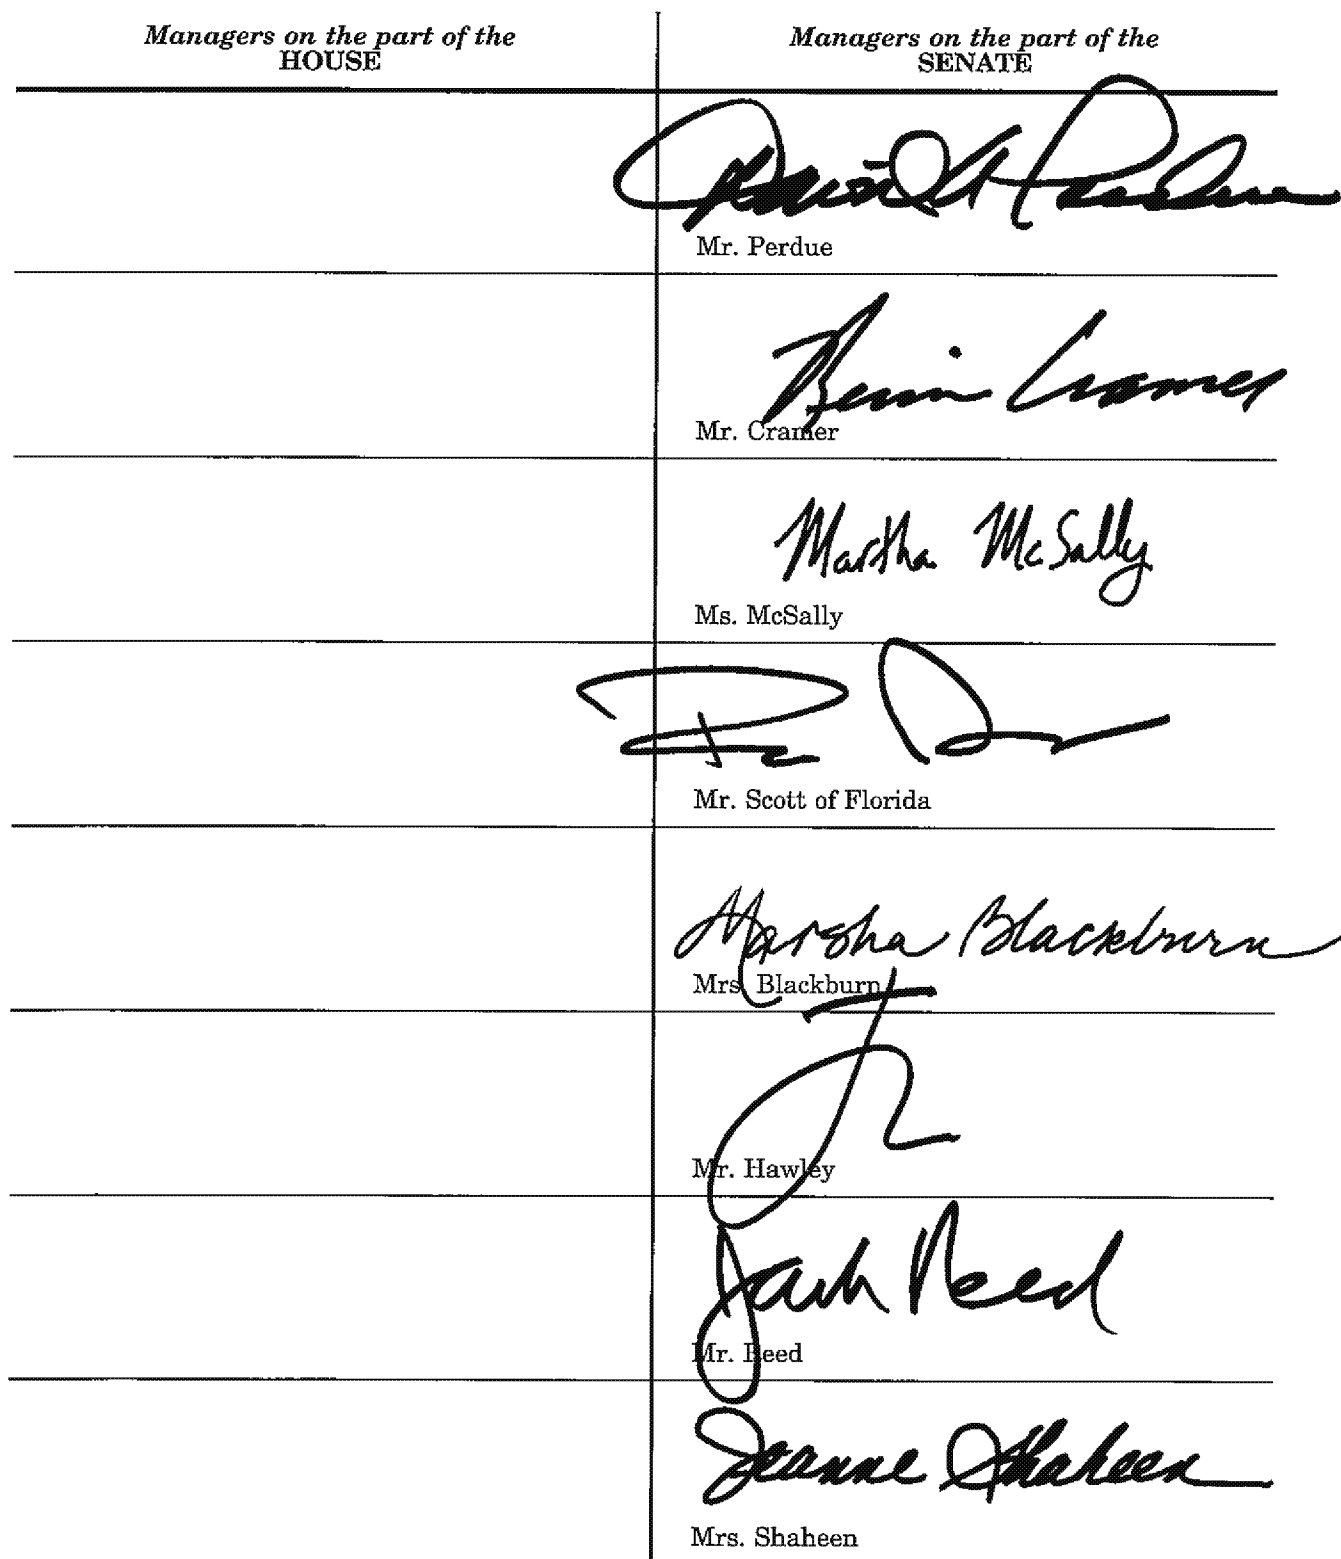 Managers on the part of the
HOUSE
Managers on the part of the
SENATE
David A Perdue
Mr. Perdue
Kevin Cramer
Mr. Cramer
Martha McSally
Ms. McSally
Mr. Scott of Florida
Marsha Blackburn
Mrs. Blackburn
Mr. Hawley
Jack Reed
Mr. Reed
Jeanne Shaheen
Mrs. Shaheen